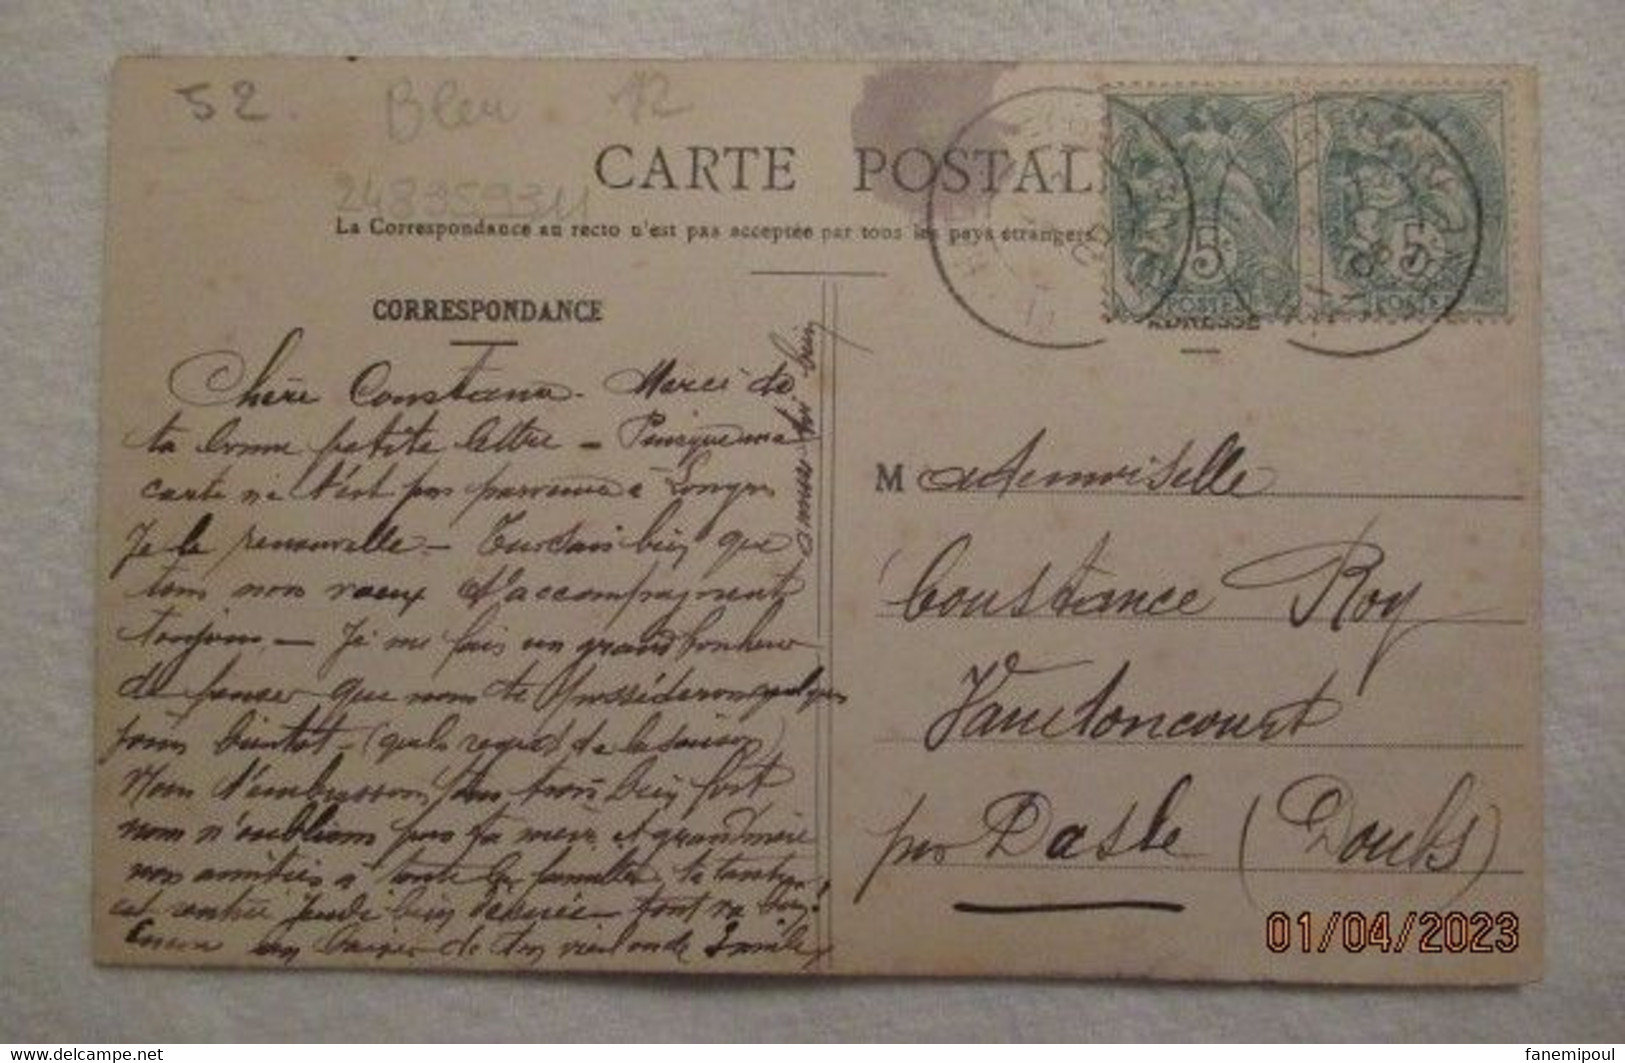 52.
Bleu 12
248959311
CARTE POSTAL
La Correspondance au recto n'est pas acceptée par tous les pays étrangers
CORRESPONDANCE
Chère Constance. Merci de
ta bonne petite lettre – Puisque ma
carte ne t'est pas parvenue à Longres
Je la renouvelle – Tu sais bien que
tous nos vœux t'accompagnent
toujours – Je me fais un grand bonheur
de penser que nous te posséderons quelques
jours bientôt – (quels regrets de la saison)
Nous t'embrassons tous trois bien fort
nous n'oublions pas ta mère et grand'mère
nos amitiés à toute la famille ta tante
est rentrée jeudi bien tout va bien!
Encore un baiser de ton vieil oncle Emile
5c 5c
POSTES POSTES
ADRESSE
Mademoiselle
Constance Roy
Vandoncourt
par Dasle (Doubs)
01/04/2023
https://www.delcampe.net
fanemipoul